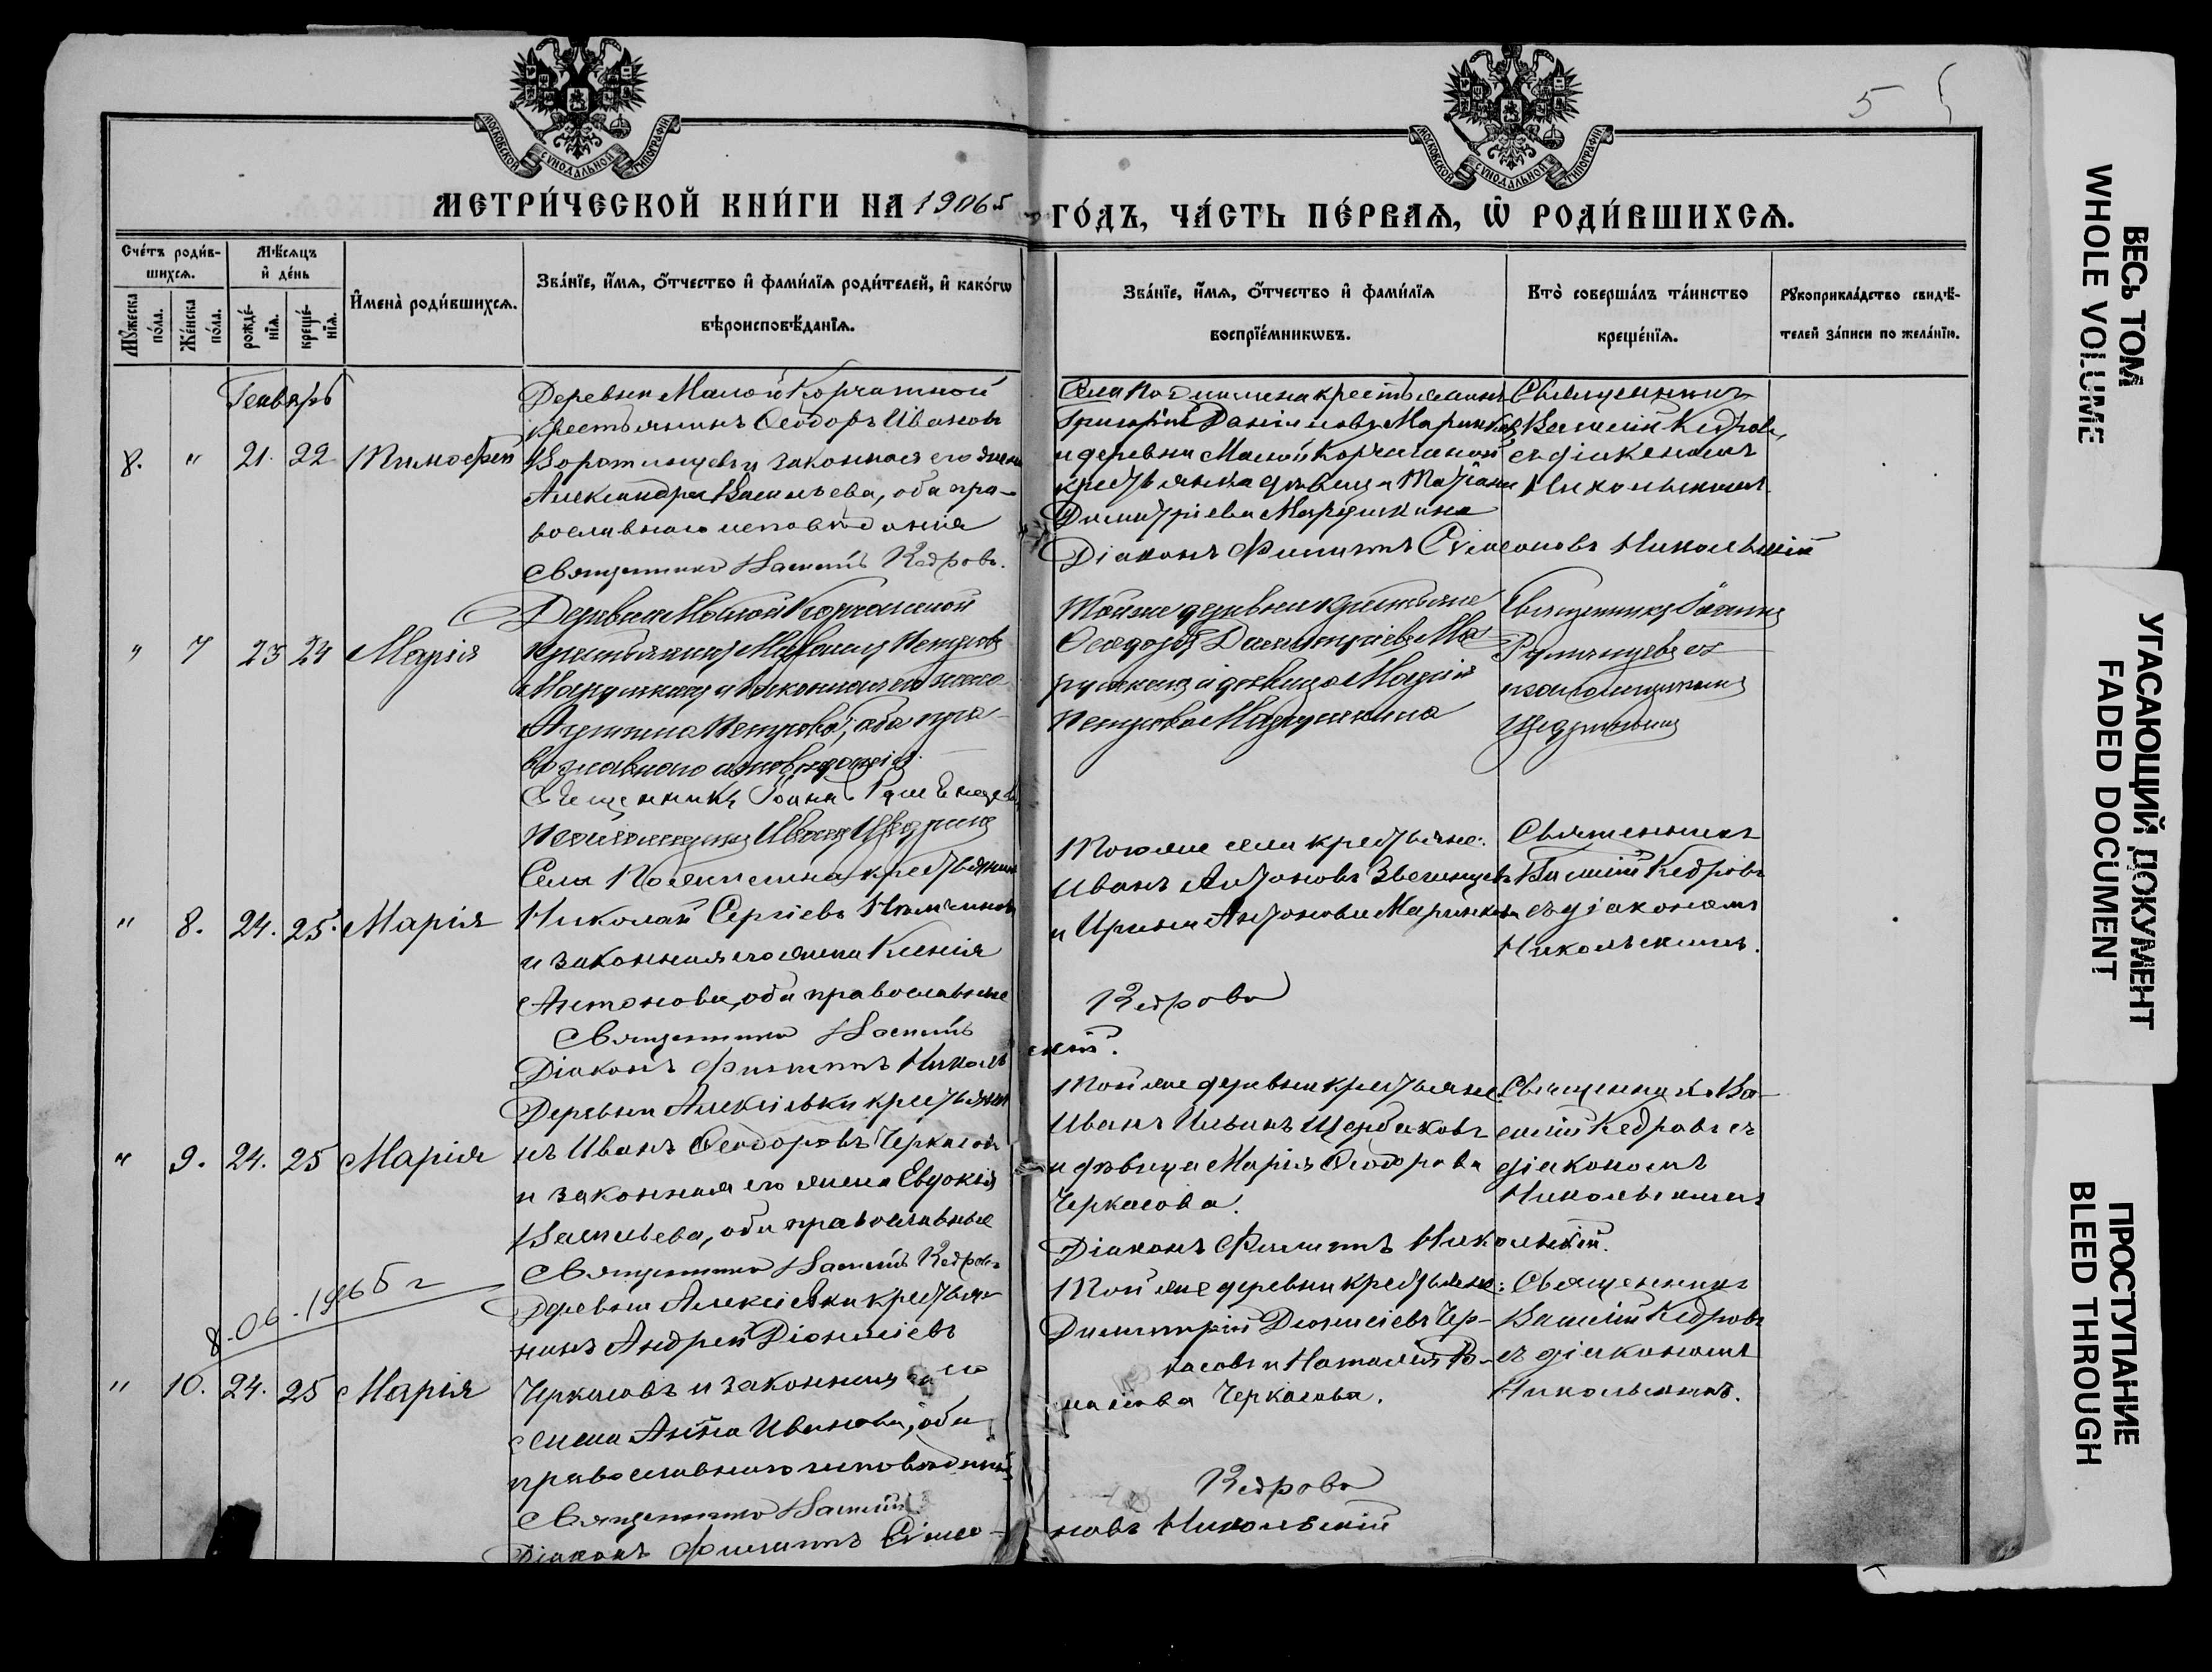 МОСКОВСКОЙ СѴНОДАЛЬНОЙ ТИПОГРАФІИ
МОСКОВСКОЙ СѴНОДАЛЬНОЙ ТИПОГРАФІИ
5
МЕТРИ́ЧЕСКОЙ КНИ́ГИ НА 1906 5
ГО́ДЪ, ЧА́СТЬ ПЕ́РВАѦ, Ѡ҆ РОДИ́ВШИХСѦ.
Сче́тъ роди́в-
шихсѧ.
Мѣ́сѧцъ
и҆ де́нь
Мꙋ́жеска
по́ла.
Же́нска
по́ла.
рожде́-
нїѧ.
креще́-
нїѧ.
И҆мена̀ роди́вшихсѧ.
Зва́нїе, и҆́мѧ, ѻ҆́тчество и҆ фами́лїѧ роди́телей, и҆ како́гѡ
вѣроисповѣ́данїѧ.
Зва́нїе, и҆́мѧ, ѻ҆́тчество и҆ фами́лїѧ
воспрїе́мникѡвъ.
Кто̀ соверша́лъ та́инство
креще́нїѧ.
Рꙋкоприкла́дство свидѣ́-
телей за́писи по жела́нїю.
Генварь
8. " 21. 22 Тимофей
Деревни Малой Корчажной
крестьянинъ Ѳеодоръ Ивановъ
и законная его жена
Александра Васильева, оба пра-
вославнаго исповѣданія
Священникъ Василій Кедровъ.
крестьянинъ
Григорій Даніиловъ
и деревни Малой Корчажной
крестьянка дѣвица Татіана
Димитріева Марушкина
Діаконъ Филиппъ Сѵмеоновъ Никольскій
Священникъ
Василій Кедровъ
съ діакономъ
Никольскимъ
" 7 23 24 Марія
Деревни Малой Корчажной
крестьянинъ Петровъ
и законная его жена
Петрова, оба пра-
вославнаго исповѣданія.
Священникъ Іоаннъ
Псаломщикъ Иванъ
Той же деревни крестьяне
Ѳеодоръ Димитріевъ Ма-
рушкинъ и дѣвица Марія
Петрова Марушкина
Священникъ Іоаннъ
съ
псаломщикомъ
" 8. 24. 25. Марія
Села крестьянинъ
Николай Сергіевъ
и законная его жена Ксенія
Антонова, оба православные
Священникъ Василій
Кедровъ
Діаконъ Филиппъ Николь
скій.
Того же села крестьяне:
Иванъ Антоновъ
и Ирина Антонова
Священникъ
Василій Кедровъ
съ діакономъ
Никольскимъ.
" 9. 24. 25 Марія
Деревни Алексіевки крестьяни
нъ Иванъ Ѳеодоровъ Черкасовъ
и законная его жена Евдокія
Васильева, оба православные
Священникъ Василій Кедровъ
Той же деревни крестьяне:
Иванъ Ильинъ Щербаковъ
и дѣвица Марія Ѳеодорова
Черкасова.
Діаконъ Филиппъ Никольскій.
Священникъ Ва-
силій Кедровъ съ
діакономъ
Никольскимъ
8.06.1965 г
" 10. 24. 25 Марія
Деревни Алексіевки крестья-
нинъ Андрей Діонисіевъ
Черкасовъ и законная его
жена Анна Иванова, оба
православнаго исповѣданія
Священникъ Василій
Кедровъ
Діаконъ Филиппъ Сімео-
новъ Никольскій
Той же деревни крестьяне:
Димитрій Діонисіевъ Чер-
касовъ и Наталія
Черкасова.
Священникъ
Василій Кедровъ
съ діакономъ
Никольскимъ.
ВЕСЬ ТОМ
WHOLE VOLUME
УГАСАЮЩИЙ ДОКУМЕНТ
FADED DOCUMENT
ПРОСТУПАНИЕ
BLEED THROUGH